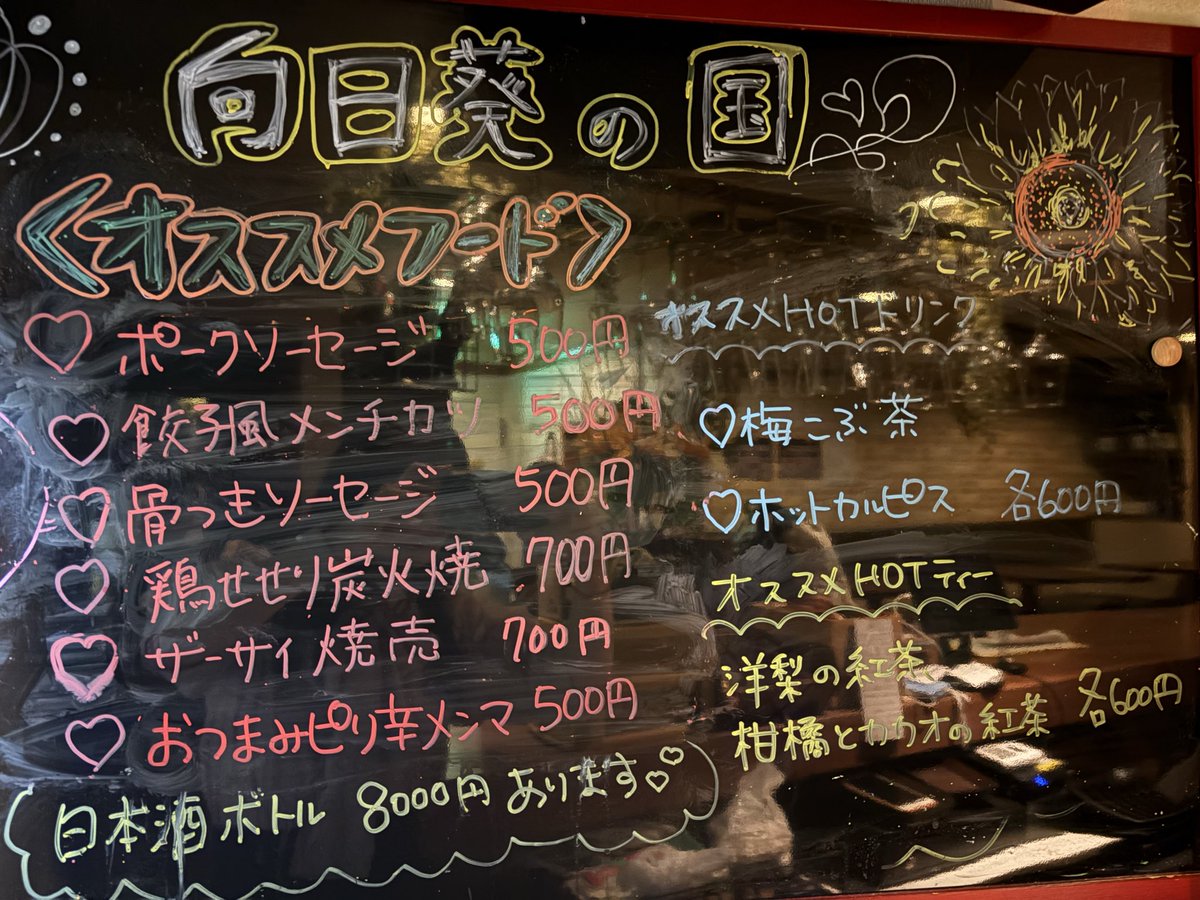 向日葵の国
〈オススメフード〉
♡ ポークソーセージ 500円
♡ 餃子風メンチカツ 500円
♡ 骨つきソーセージ 500円
♡ 鶏せせり炭火焼 700円
♡ ザーサイ焼売 700円
♡ おつまみピリ辛メンマ 500円
日本酒ボトル 8000円あります♡♡
オススメHOTドリンク
♡梅こぶ茶
♡ホットカルピス 各600円
オススメHOTティー
洋梨の紅茶
柑橘とカカオの紅茶 各600円